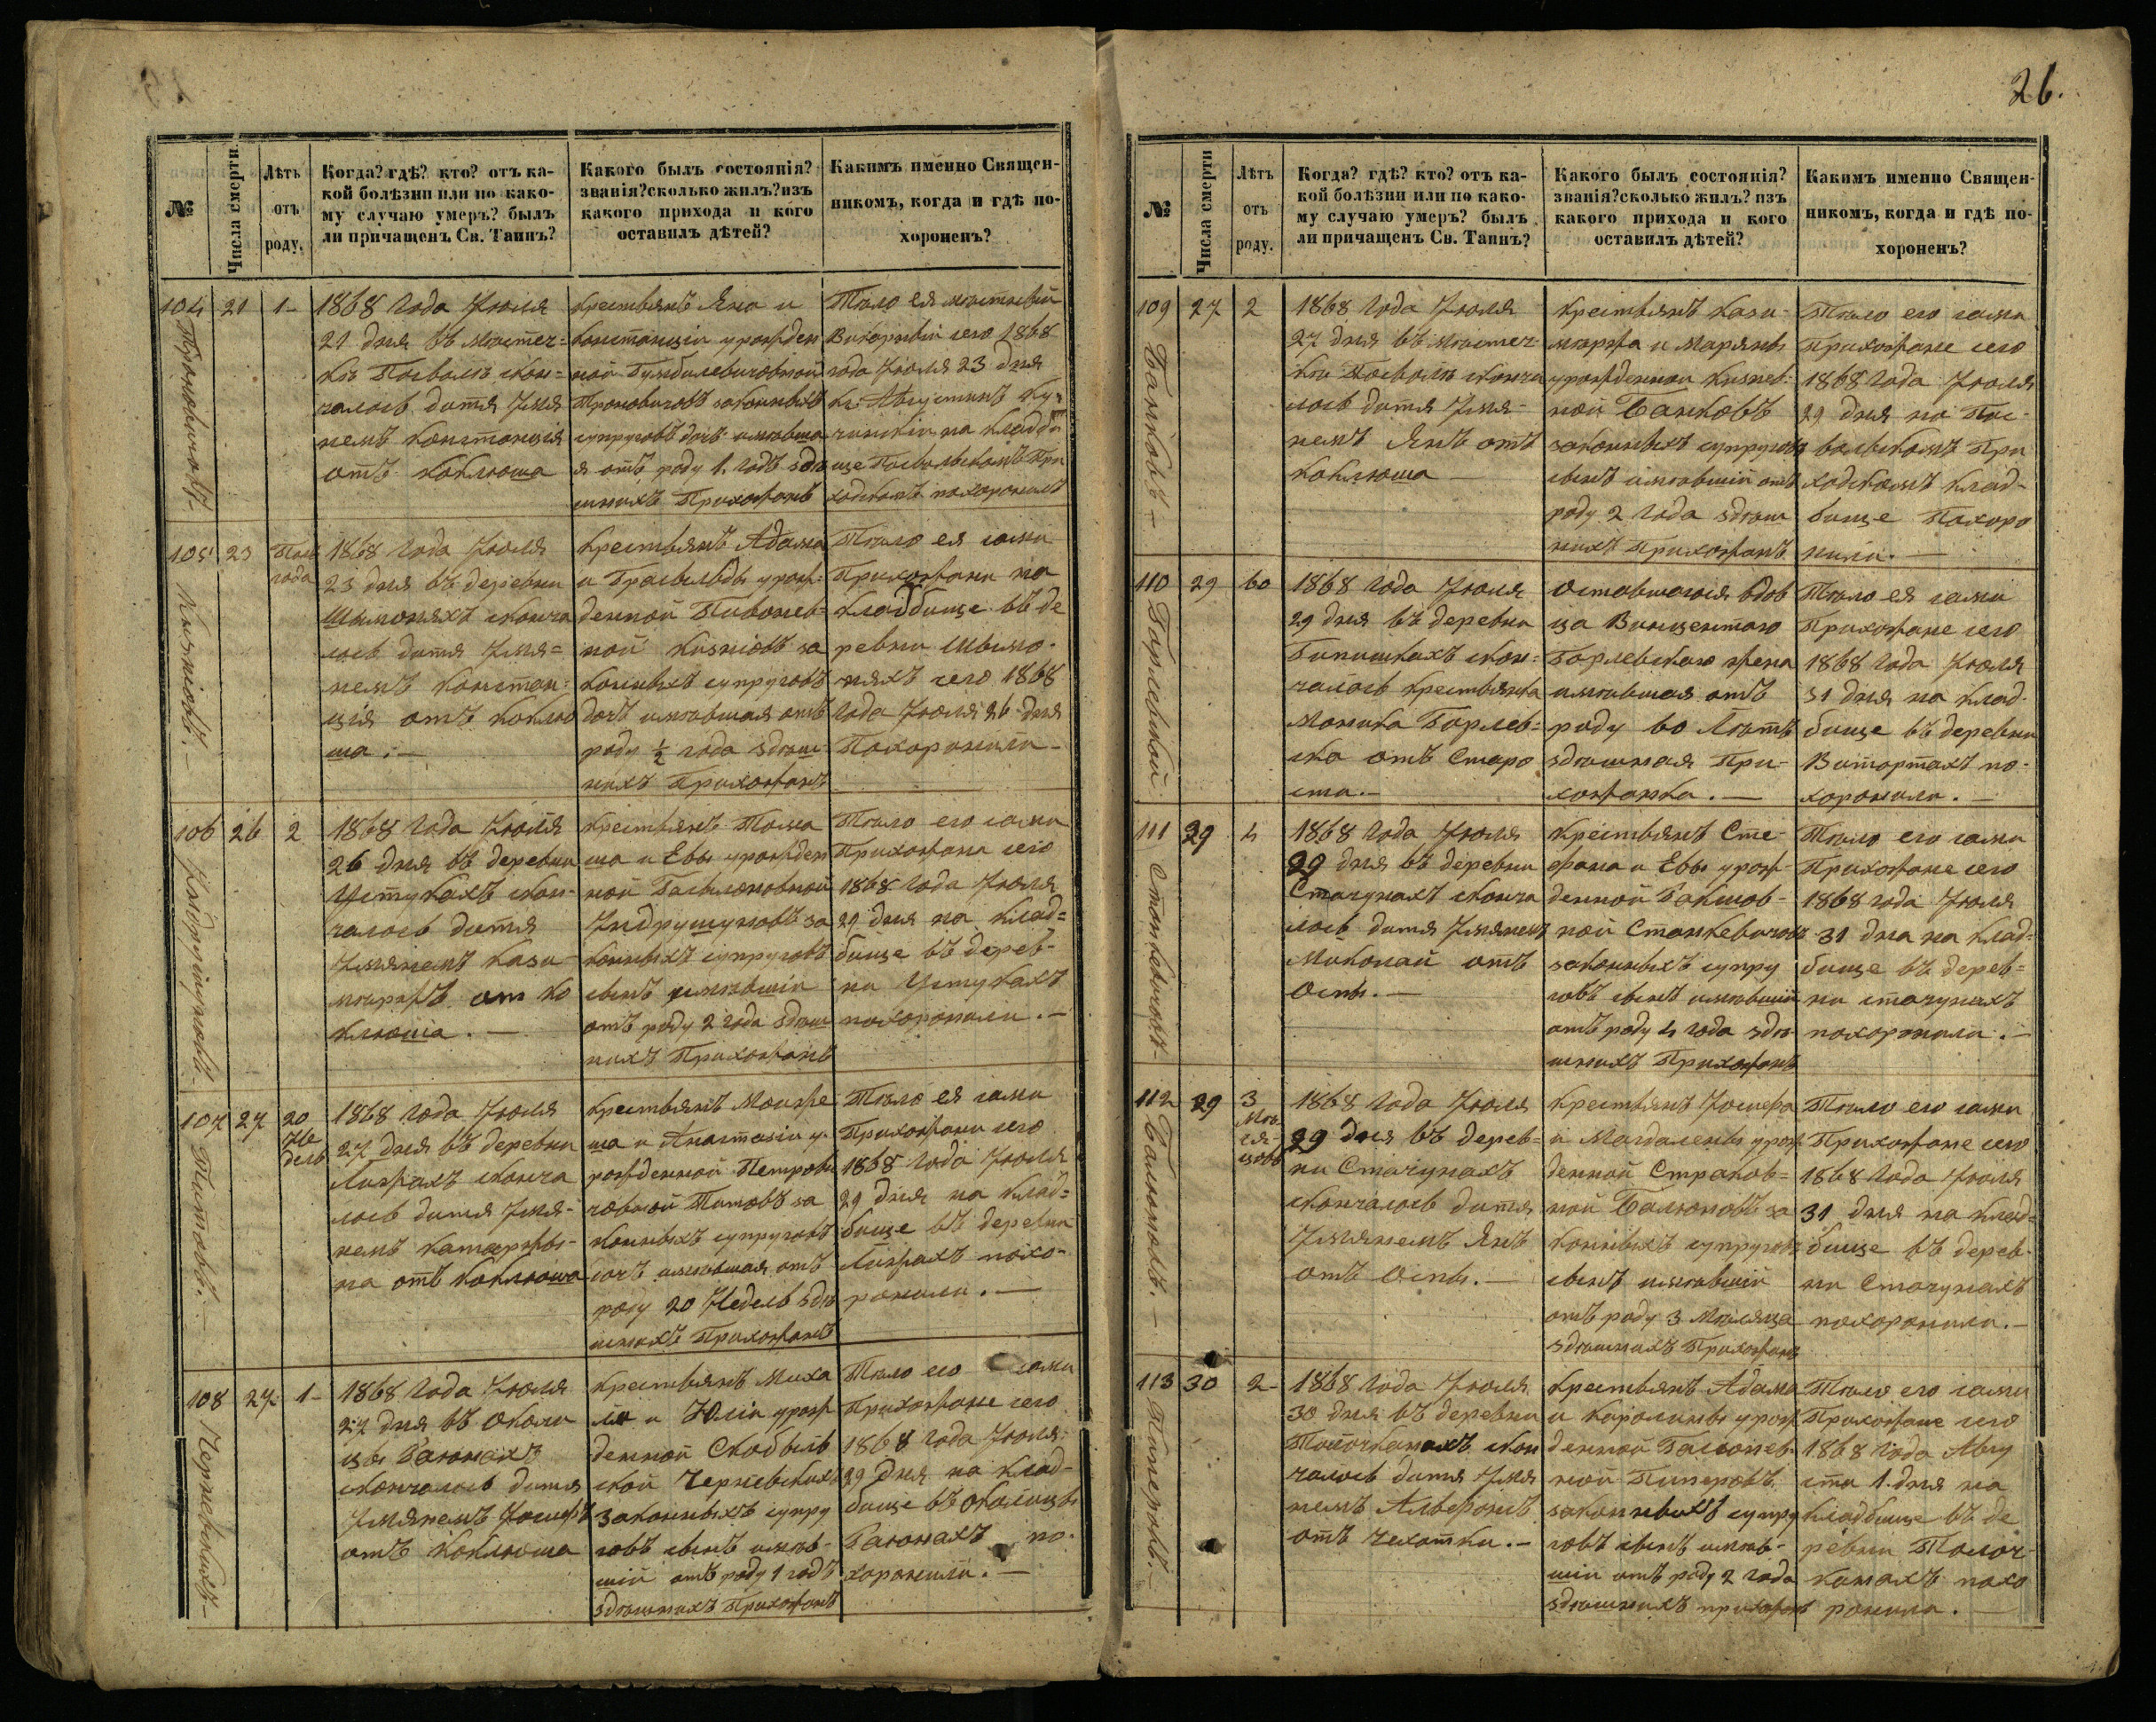 26.
№
Числа смерти
Лѣтъ
отъ
роду.
Когда? гдѣ? кто? отъ ка-
кой болѣзни или по како-
му случаю умеръ? былъ
ли причащенъ Св. Таинъ?
Какого былъ состоянія?
званія? сколько жилъ? изъ
какого прихода и кого
оставилъ дѣтей?
Какимъ именно Священ-
никомъ, когда и гдѣ по-
хороненъ?
104
21
1-
1868 Года Іюля
21 дня въ мѣстеч=
кѣ Посволѣ скон=
чалось дитя Имя
немъ Констанція
отъ коклюша
Крестьянъ Яна и
Констанціи урожден
ной
законныхъ
супруговъ дочь имѣвша
я отъ роду 1. годъ здѣ
шнихъ Прихожанъ
Тѣло ея мѣстный
Викарный сего 1868
года Іюля 23 дня
Кс: Августинъ Ку
чинскій на кладби
ще Посвольскомъ При
ходскомъ похоронилъ
105
23
Пол
года
1868 Года Іюля
23 дня въ деревни
Шимоняхъ сконча
лось дитя Имя=
немъ Констан=
ція отъ коклю
ша.-
Крестьянъ Адама
и урож=
денной
ной за
конныхъ супруговъ
дочь имѣвшая отъ
роду ½ года здѣш
нихъ Прихожанъ
Тѣло ея сами
Прихожани на
Кладбище въ де
ревни Шимо-
няхъ сего 1868
года Іюля 26 дня
Похоронили-
106
26
2
1868 Года Іюля
26 дня въ деревни
Устукахъ скон-
чалось дитя
Имянемъ Кази-
миръ от ко
клюша.-
Крестьянъ Тома
ша и Евы урожден
ной
за
конныхъ супруговъ
сынъ имѣвшій
отъ роду 2 года здѣш
нихъ Прихожанъ
Тѣло его сами
Прихожани сего
1868 Года Іюля
29 дня на Клад=
бище въ дерев-
ни Устукахъ
похоронили.-
107
27
20
Не
дель
Титовъ.-
1868 Года Іюля
27 дня въ деревни
сконча
лось дитя Имя-
немъ Катаржы-
на отъ Коклюша
Крестьянъ Моиже
ша и Анастазіи у-
рожденной Петрови
човной Титовъ за
конныхъ супруговъ
дочь имѣвшая отъ
роду 20 Недель здѣ
шнихъ Прихожанъ
Тѣло ея сами
Прихожани сего
1868 Года Іюля
29 дня на Клад=
бище въ деревни
похо-
ронили.-
108
27
1-
Черневскихъ-
1868 Года Іюля
27 дня въ Околи
цы Гаюнахъ
скончалось дитя
Имянемъ Іосифъ
отъ Коклюша
Крестьянъ Миха
ла и Юліи урож
денной Скобель
ской Черневскихъ
Законныхъ супру
говъ сынъ имѣв-
шій отъ роду 1 годъ
здѣшнихъ Прихожанъ
Тѣло его сами
Прихожане сего
1868 года Іюля
29 дня на Клад-
бище въ Околицы
Гаюнахъ по-
хоронили.-
№
Числа смерти
Лѣтъ
отъ
роду.
Когда? гдѣ? кто? отъ ка-
кой болѣзни или по како-
му случаю умеръ? былъ
ли причащенъ Св. Таинъ?
Какого былъ состоянія?
званія? сколько жилъ? изъ
какого прихода и кого
оставилъ дѣтей?
Какимъ именно Священ-
никомъ, когда и гдѣ по-
хороненъ?
109
27
2
Банковъ-
1868 Года Іюля
27 дня въ мѣстеч-
ки Посволѣ сконча
лось дитя Имя-
немъ Янъ отъ
коклюша-
Крестьянъ Кази-
миржа и Марянны
урожденной
ной Банковъ
законныхъ супруговъ
сынъ имѣвшій отъ
роду 2 Года здѣш
нихъ Прихожанъ
Тѣло его сами
Прихожане сего
1868 Года Іюля
29 дня на Пос-
вольскомъ При
ходскомъ Клад-
бище Похоро
нили.-
110
29
60
1868 Года Іюля
29 дня въ деревни
скон=
чалась крестьянка
Моника Борлев=
ска отъ Старо
сти.-
Оставшагося вдов
ца Винцентаго
Борлевскаго жена
имѣвшая отъ
роду 60 Лѣтъ
здѣшная При-
хожанка.-
Тѣло ея сами
Прихожане сего
1868 Года Іюля
31 дня на Клад-
бище въ деревни
по-
хоронили.-
111
29
4
Станкевичовъ-
1868 Года Іюля
29 дня въ деревни
Стачунахъ сконча
лось дитя Имянемъ
Миколай отъ
Оспы.-
Крестьянъ Сте-
фана и Евы урож-
денной
ной Станкевичовъ
законныхъ супру
говъ сынъ имѣвшій
отъ роду 4 года здѣ-
шнихъ Прихожанъ
Тѣло его сами
Прихожане сего
1868 года Іюля
31 дня на Клад=
бище въ дерев=
ни Стачунахъ
похоронили.-
112
29
3
Мѣ
ся-
цовъ
Балюновъ.-
1868 Года Іюля
29 дня въ дерев=
ни Стачунахъ
скончалось дитя
Имянемъ Янъ
отъ Оспы.-
Крестьянъ Іосифа
и Магдалены урож
денной
ной Балюновъ за
конныхъ супруговъ
сынъ имѣвшій
отъ роду 3 Мѣсяца
здѣшнихъ Прихожанъ
Тѣло его сами
Прихожане сего
1868 Года Іюля
31 дня на Клад=
бище въ дерев-
ни Стачунахъ
похоронили.-
113
30
2-
1868 Года Іюля
30 дня въ деревни
скон
чалось дитя Имя
немъ Альфонсъ
отъ чехотки.-
Крестьянъ Адама
и Каролины урож
денной
ной
законныхъ супру
говъ сынъ имѣв-
шій отъ роду 2 года
здѣшнихъ прихожанъ
Тѣло его сами
Прихожане сего
1868 Года Авгу
ста 1. дня на
Кладбище въ де
ревни
похо
ронили.-